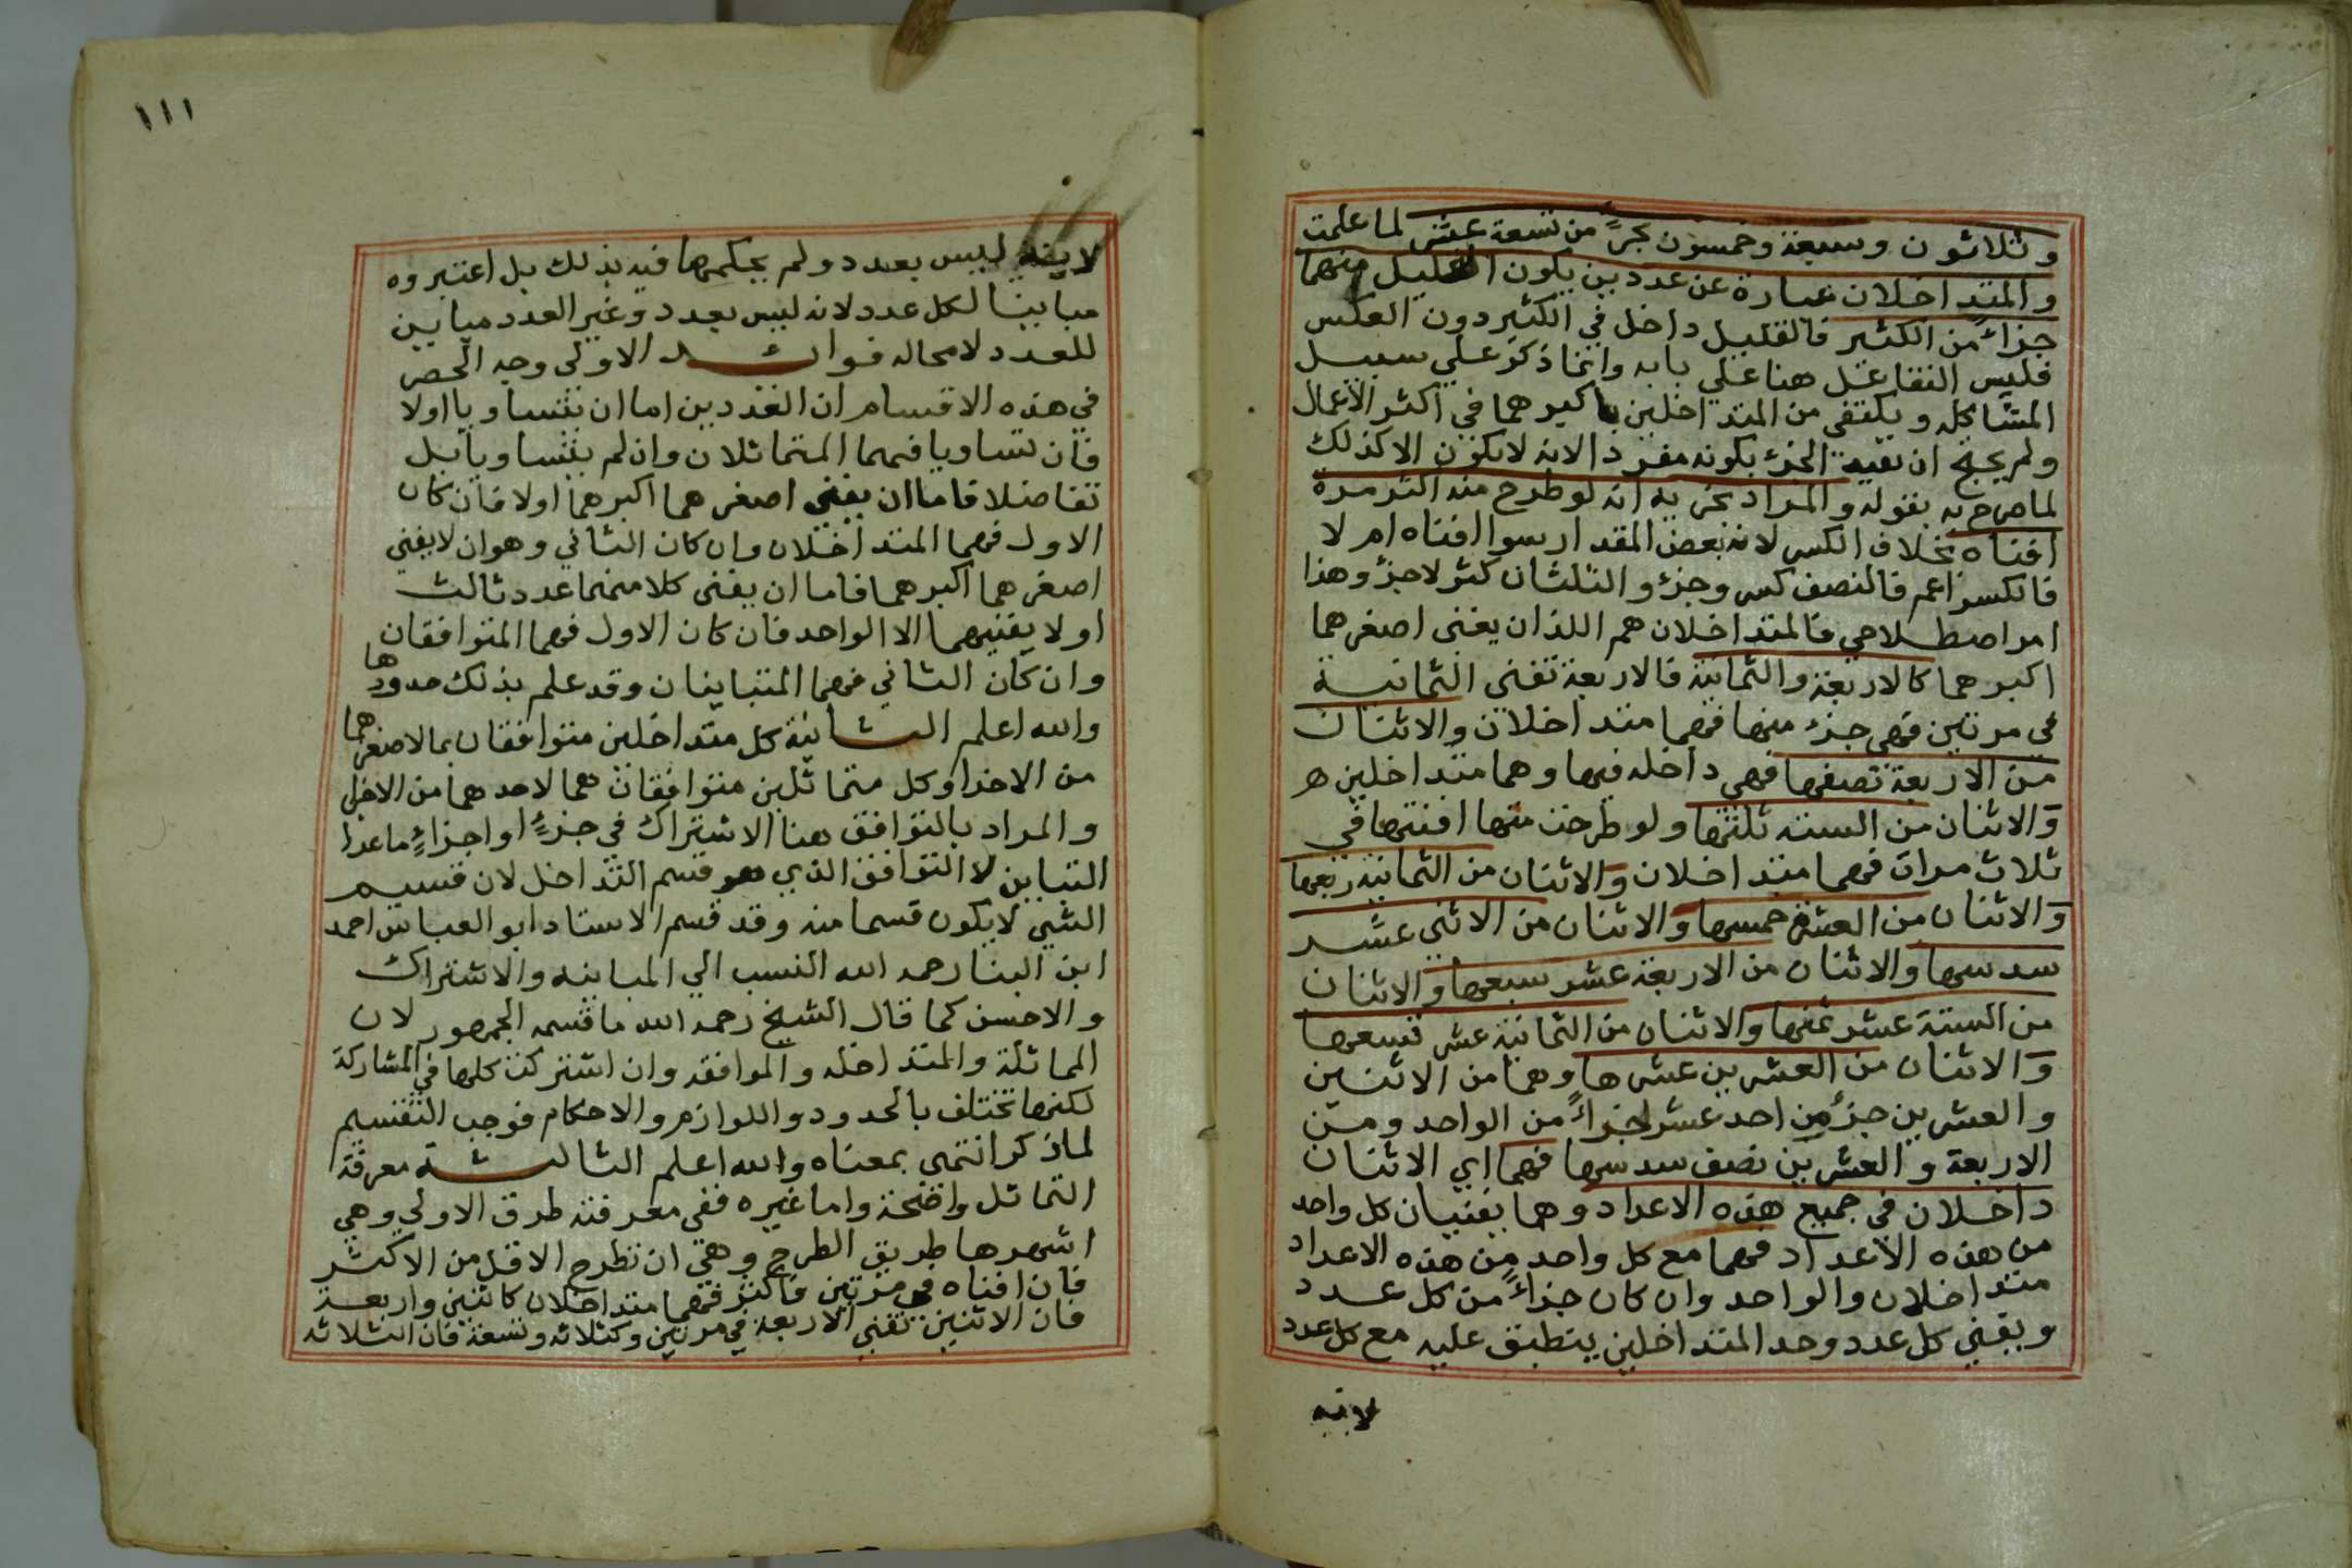 وثلاثون وسبعة وخمسون بجزء من تسعة عشر لما علمت
والمتداخلان عبارة عن عددين يكون القليل منهما
جزاء من الكثير فالقليل داخل في الكثير دون العكس
فليس التفاعل هنا علي بابه وانما ذكر علي سبيل
المشاكله ويكتفى من المتداخلين باكبرهما في اكثر الاعمال
ولم يحتج ان يقيد الجزء بكونه مفردا لانه لا يكون الا كذلك
لما صرح به بقوله والمراد بجزء به انه لو طرح منه اكثر مرة
افناه بخلاف الكسر لانه بعض المقدار سوا افناه ام لا
فالكسر اعم فالنصف كسر وجزء والثلثان كسر لا جزء وهذا
امر اصطلاحي فالمتداخلان هم اللذان يفنى اصغرهما
اكبرهما كالاربعة والثمانية فالاربعة تفنى الثمانية
في مرتين فهي جزء منها فهما متداخلان والاثنان
من الاربعة نصفها فهي داخله فيها وهما متداخلين
والاثنان من الستة ثلثها ولو طرحت منها افنتها في
ثلاث مرات فهما متداخلان والاثنان من الثمانية ربعها
والاثنان من العشرة خمسها والاثنان من الاثني عشر
سدسها والاثنان من الاربعة عشر سبعها والاثنان
من الستة عشر ثمنها والاثنان من الثمانية عشر تسعها
والاثنان من العشرين عشرها وهما من الاثنين
والعشرين جزء من احد عشر جزاء من الواحد ومن
الاربعة والعشرين نصف سدسها فهما اي الاثنان
داخلان في جميع هذه الاعداد وهما يفنيان كل واحد
من هذه الاعداد فهما مع كل واحد من هذه الاعداد
متداخلان والواحد وان كان جزاء من كل عدد
ويفني كل عدد وحد المتداخلين ينطبق عليه مع كل عدد
لانه
١١١
لانه ليس بعدد ولم يحكموا فيه بذلك بل اعتبروه
مباينا لكل عدد لانه ليس بعدد وغير العدد مباين
للعدد لا محاله فوائد الاولى وجه الحصر
في هذه الاقسام ان العددين اما ان يتساويا اولا
فان تساويا فهما المتماثلان وان لم يتساويا بل
تفاضلا فاما ان يفني اصغرهما اكبرهما اولا فان كان
الاول فهما المتداخلان وان كان الثاني وهو ان لا يفني
اصغرهما اكبرهما فاما ان يفنى كلا منهما عدد ثالث
اولا يفنيهما الا الواحد فان كان الاول فهما المتوافقان
وان كان الثاني فهما المتباينان وقد علم بذلك حدودها
والله اعلم الثانية كل متداخلين متوافقان بما لاصغرهما
من الاجزا وكل متماثلين متوافقان بما لاحدهما من الاجزا
والمراد بالتوافق هنا الاشتراك في جزء او اجزاء ما عدا
التباين لا التوافق الذي هو قسم التداخل لان قسيم
الشي لا يكون قسما منه وقد قسم الاستاد ابو العباس احمد
ابن البنا رحمه الله النسب الي المباينه والاشتراك
والاحسن كما قال الشيخ رحمه الله ما قسمه الجمهور لان
المماثلة والمتداخله والموافقه وان اشتركت كلها في المشاركة
لكنها تختلف بالحدود واللوازم والاحكام فوجب التقسيم
لما ذكر انتهى بمعناه والله اعلم الثالثة معرفة
التماثل واضحة واما غيره ففي معرفته طرق الاولي وهي
اشهرها طريق الطرح وهي ان تطرح الاقل من الاكثر
فان افناه في مرتين فاكثر فهما متداخلان كاثنين واربعة
فان الاثنين تفني الاربعة في مرتين وكثلاثه وتسعة فان الثلاثه